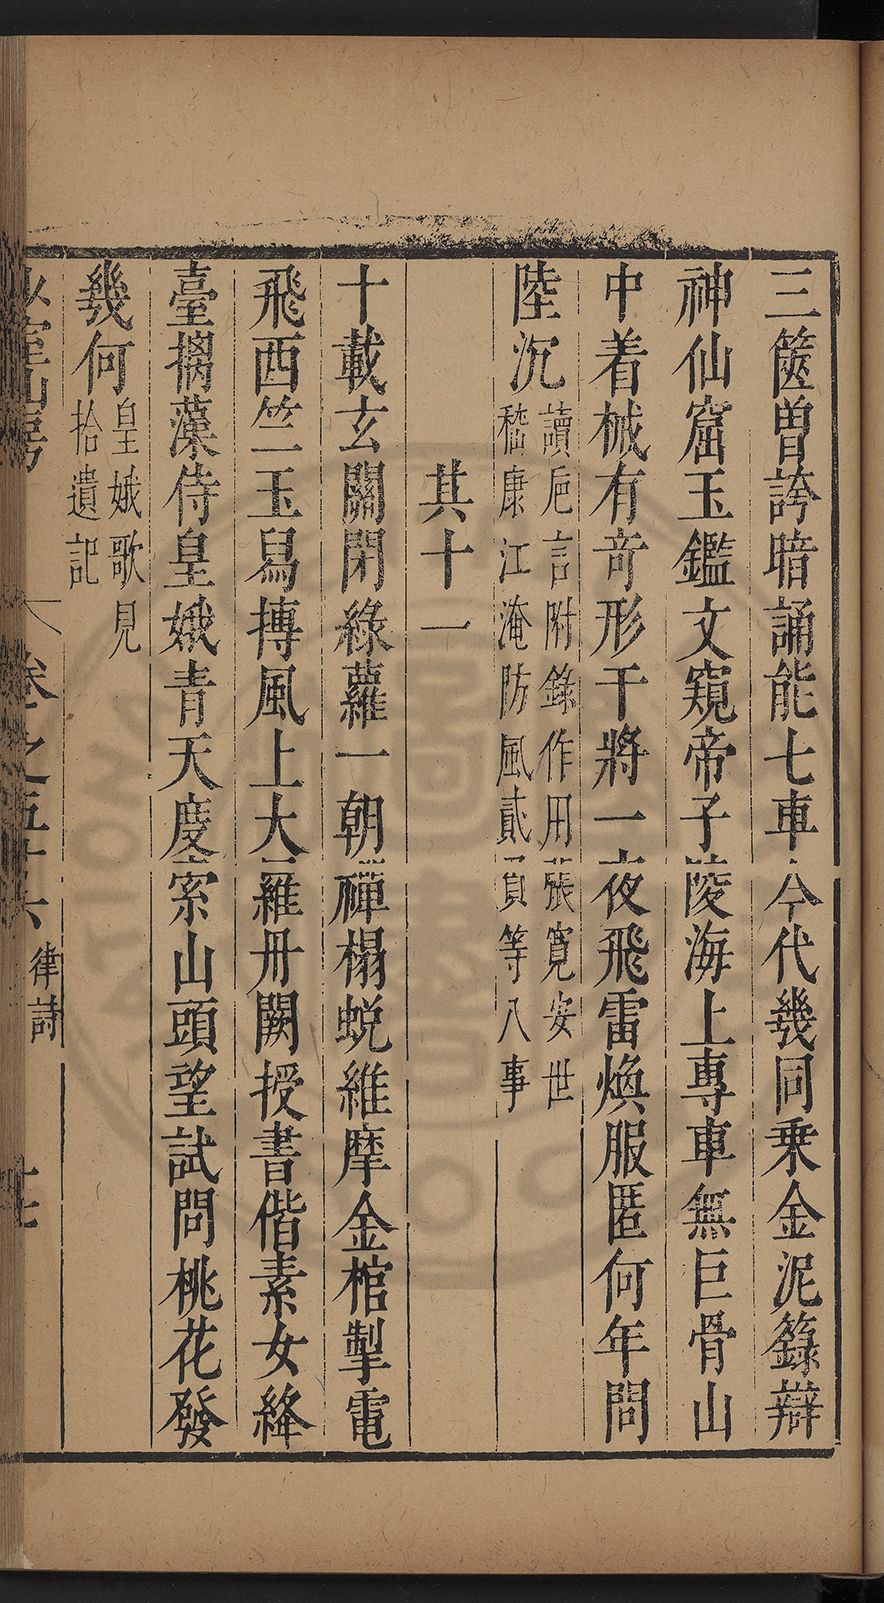 三篋曽誇暗誦能七車今代幾同乗金泥籙辯
神仙窟玉鑑文窺帝子陵海上專車無巨骨山
中着械有竒形干將一夜飛雷煥服匿何年問
陸沉讀巵言附錄作用張寛安世
嵇康江淹防風貳負等八事
其十一
十載玄關閉綠蘿一朝禪榻蛻維摩金棺掣電
飛西竺玉舄摶風上大羅丹闕授書偕素女絳
臺摛藻侍皇娥青天度索山頭望試問桃花發
幾何皇娥歌見
拾遺記
山房 卷之五十六 律詩